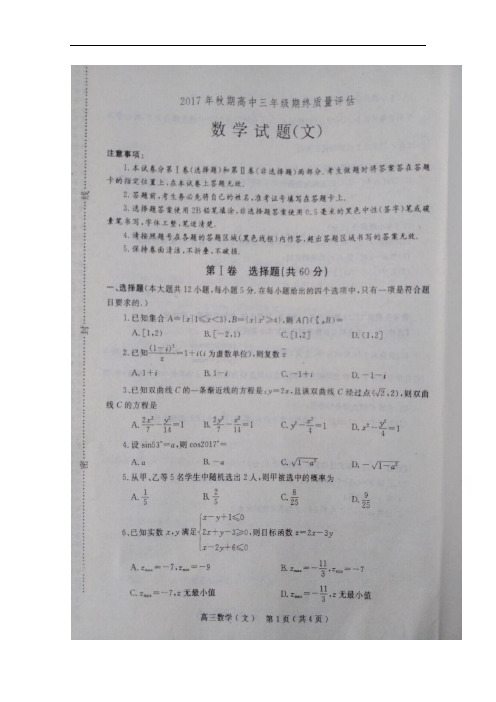 2017年秋期高中三年级期终质量评估
数学试题(文)
注意事项:
1.本试卷分第Ⅰ卷(选择题)和第Ⅱ卷(非选择题)两部分.考生做题时将答案答在答题
卡的指定位置上,在本试卷上答题无效.
2.答题前,考生务必先将自己的姓名,准考证号填写在答题卡上.
3.选择题答案使用2B铅笔填涂,非选择题答案使用0.5毫米的黑色中性(签字)笔或碳
素笔书写,字体工整,笔迹清楚.
4.请按照题号在各题的答题区域(黑色线框)内作答,超出答题区域书写的答案无效.
5.保持卷面清洁,不折叠,不破损.
第Ⅰ卷 选择题(共60分)
一、选择题(本大题共12小题,每小题5分.在每小题给出的四个选项中,只有一项是符合题
目要求的.)
1.已知集合A={x|1≤x<3},B={x|x²>4},则A∩(∁ᵣB)=
A.[1,2) B.[-2,1) C.[1,2] D.(1,2]
2.已知(1-i)²/z=1+i(i为虚数单位),则复数z̄
A.1+i B.1-i C.-1+i D.-1-i
3.已知双曲线C的一条渐近线的方程是:y=2x,且该双曲线C经过点(√2,2),则双曲
线C的方程是
A.2x²/7-y²/14=1 B.2y²/7-x²/14=1 C.y²-x²/4=1 D.x²-y²/4=1
4.设sin53°=a,则cos2017°=
A.a B.-a C.√1-a² D.-√1-a²
5.从甲、乙等5名学生中随机选出2人,则甲被选中的概率为
A.1/5 B.2/5 C.8/25 D.9/25
6.已知实数x,y满足{x-y+1≤0 2x+y-3≥0 x-2y+6≤0,则目标函数z=2x-3y
A.zmax=-7,zmin=-9 B.zmax=-11/3,zmin=-7
C.zmax=-7,z无最小值 D.zmax=-11/3,z无最小值
高三数学(文) 第1页(共4页)
线
封
密